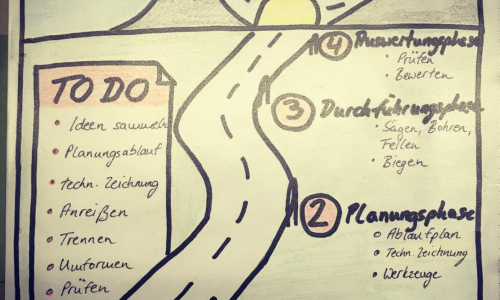 TO DO
Ideen sammeln
Planungsablauf
techn. Zeichnung
Anreißen
Trennen
Umformen
Prüfen
4 Auswertungsphase
Prüfen
Bewerten
3 Durchführungsphase
Sägen, Bohren,
Feilen
Biegen
2 Planungsphase
Ablaufplan
Techn. Zeichnung
Werkzeuge